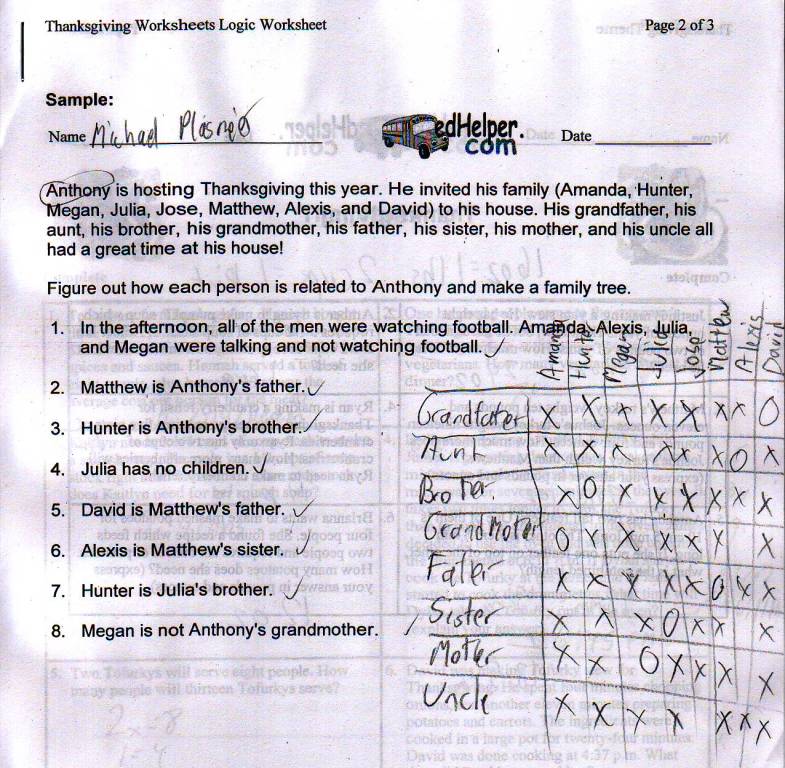 Thanksgiving Worksheets Logic Worksheet Page 2 of 3
Sample:
Name Michael edHelper.com Date
Anthony is hosting Thanksgiving this year. He invited his family (Amanda, Hunter,
Megan, Julia, Jose, Matthew, Alexis, and David) to his house. His grandfather, his
aunt, his brother, his grandmother, his father, his sister, his mother, and his uncle all
had a great time at his house!
Figure out how each person is related to Anthony and make a family tree.
1. In the afternoon, all of the men were watching football. Amanda, Alexis, Julia,
and Megan were talking and not watching football. ✓
2. Matthew is Anthony's father. ✓
3. Hunter is Anthony's brother. ✓
4. Julia has no children. ✓
5. David is Matthew's father. ✓
6. Alexis is Matthew's sister. ✓
7. Hunter is Julia's brother. ✓
8. Megan is not Anthony's grandmother.
Amanda Hunter Megan Julia Jose Matthew Alexis David
Grandfater X X X X X X X O
Aunt X X X X X X O X
Broter X O X X X X X X
Grandmoter O X X X X X X
Fater X X X X X O X X
Sister X X X O X X X
Moter X X O X X X X
Uncle X X X X X X X